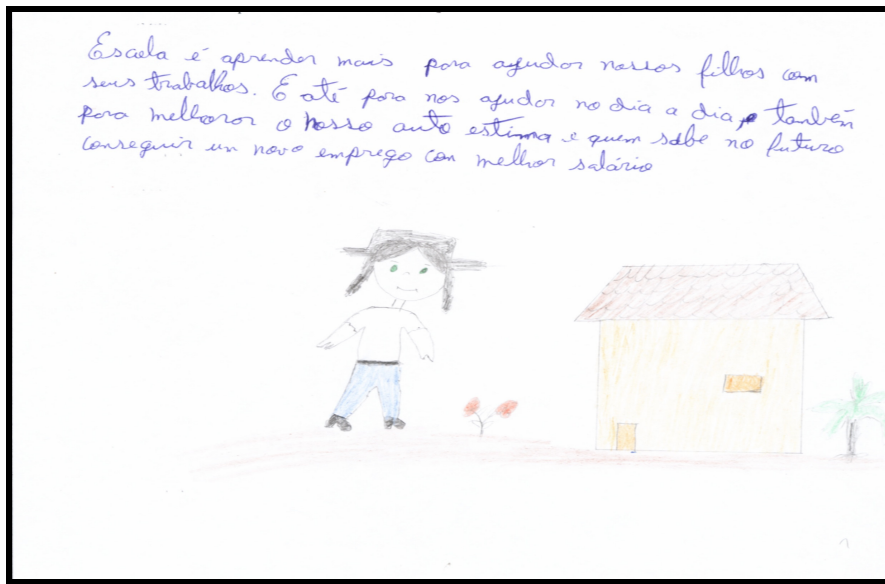 Escola é aprender mais para ajudar nossos filhos com
seus trabalhos. E até para nos ajudar no dia a dia, e também
para melhorar o nosso auto estima e quem sabe no futuro
conseguir un novo emprego con melhor salário